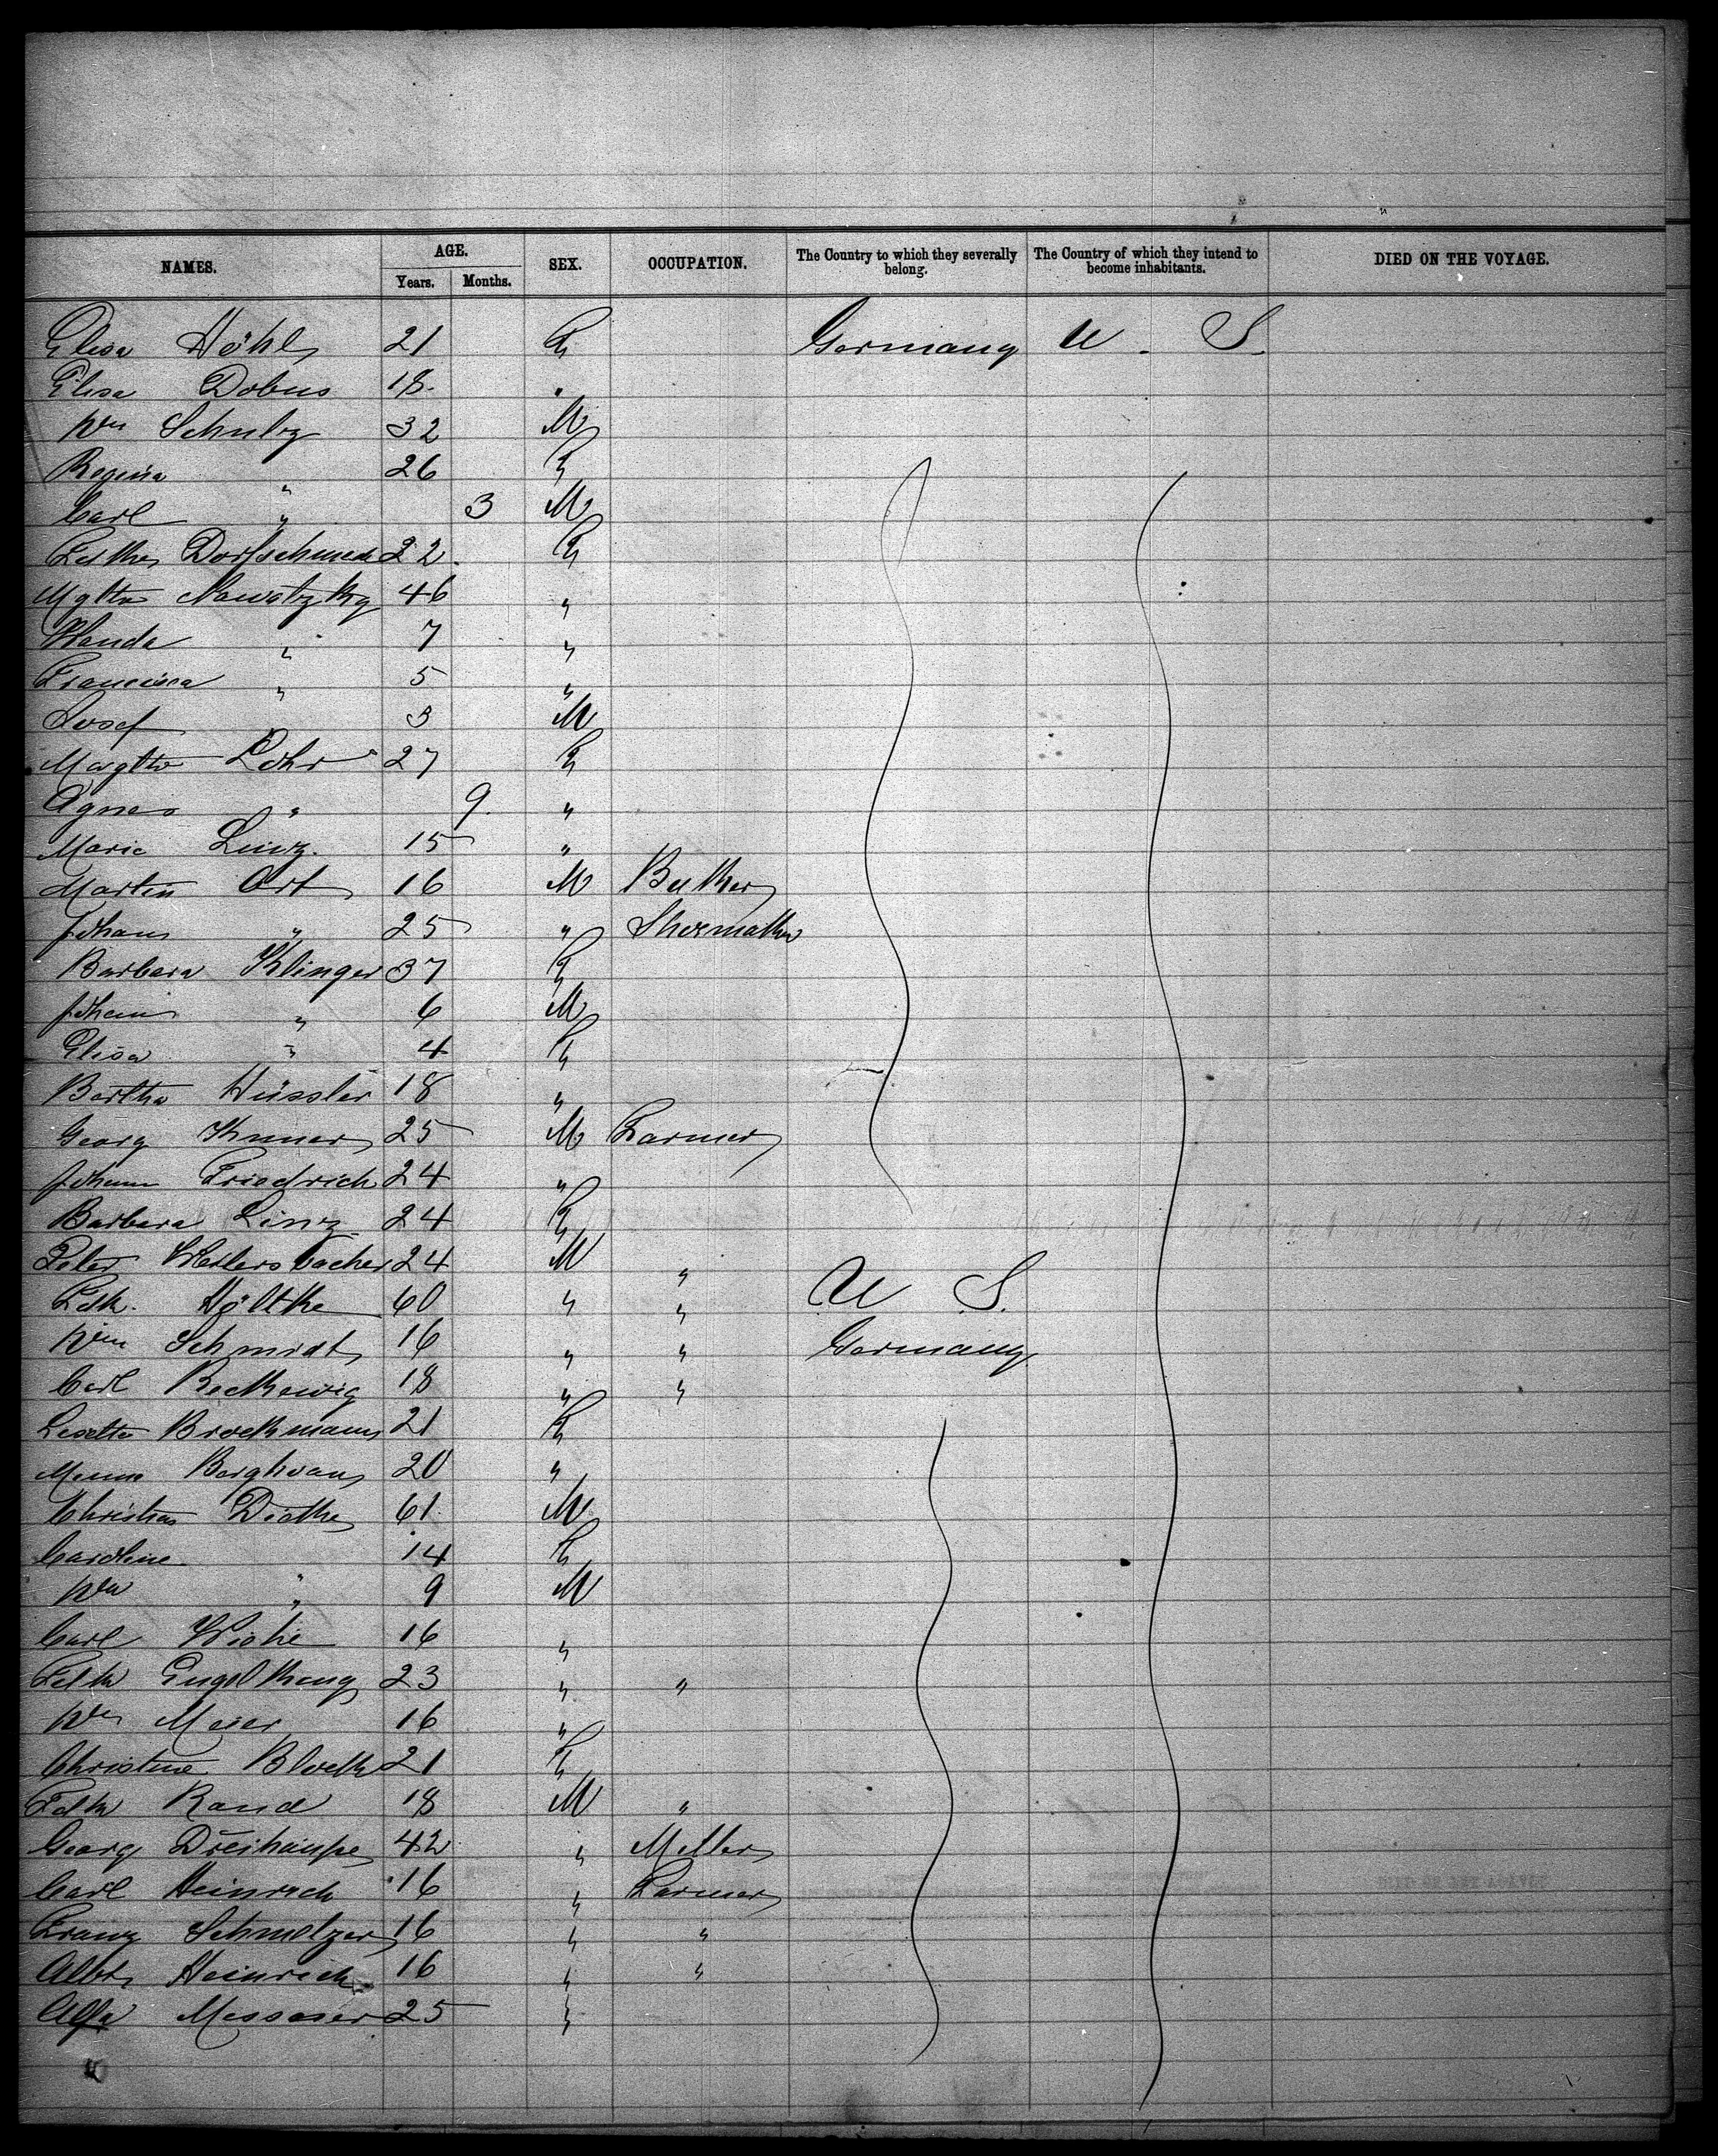 NAMES. AGE. SEX. OCCUPATION. The Country to which they severally belong. The Country of which they intend to become inhabitants. DIED ON THE VOYAGE.
Years. Months.
Elisa Höhl 21 F Germany U. S.
Elisa Dobus 18 "
Wm Schulz 32 M
Regina " 26 F
Carl " 3 M
22 F
Mgtha Nawatzky 46 "
Wanda " 7 "
Francisca " 5 "
Josef 3 M
Magtha Lohr 27 F
Agnes " 9 "
Marie Linz 15 "
Martin Ort 16 M
Johann " 25 "
Barbara Klinger 37 F
Johann " 6 M
Elisa " 4 F
Bertha Hüssler 18 "
Georg 25 M Farmer
Johann Friedrich 24 "
Barbara Linz 24 F
Peter 24 M "
Fdk. Höltke 60 " " U S.
Wm Schmidt 16 " " Germany
Carl 18 " "
Lisette Brockmann 21 F
20 "
Christian 61 M
Caroline " 14 F
Wm " 9 M
Carl 16 "
Fdk 23 " "
Wm Meier 16 "
Christine Block 21 F
Fdk Rand 18 M "
Georg 42 " Miller
Carl Heinrich 16 " Farmer
Franz Schmelzer 16 " "
Albt Heinrich 16 " "
25 "